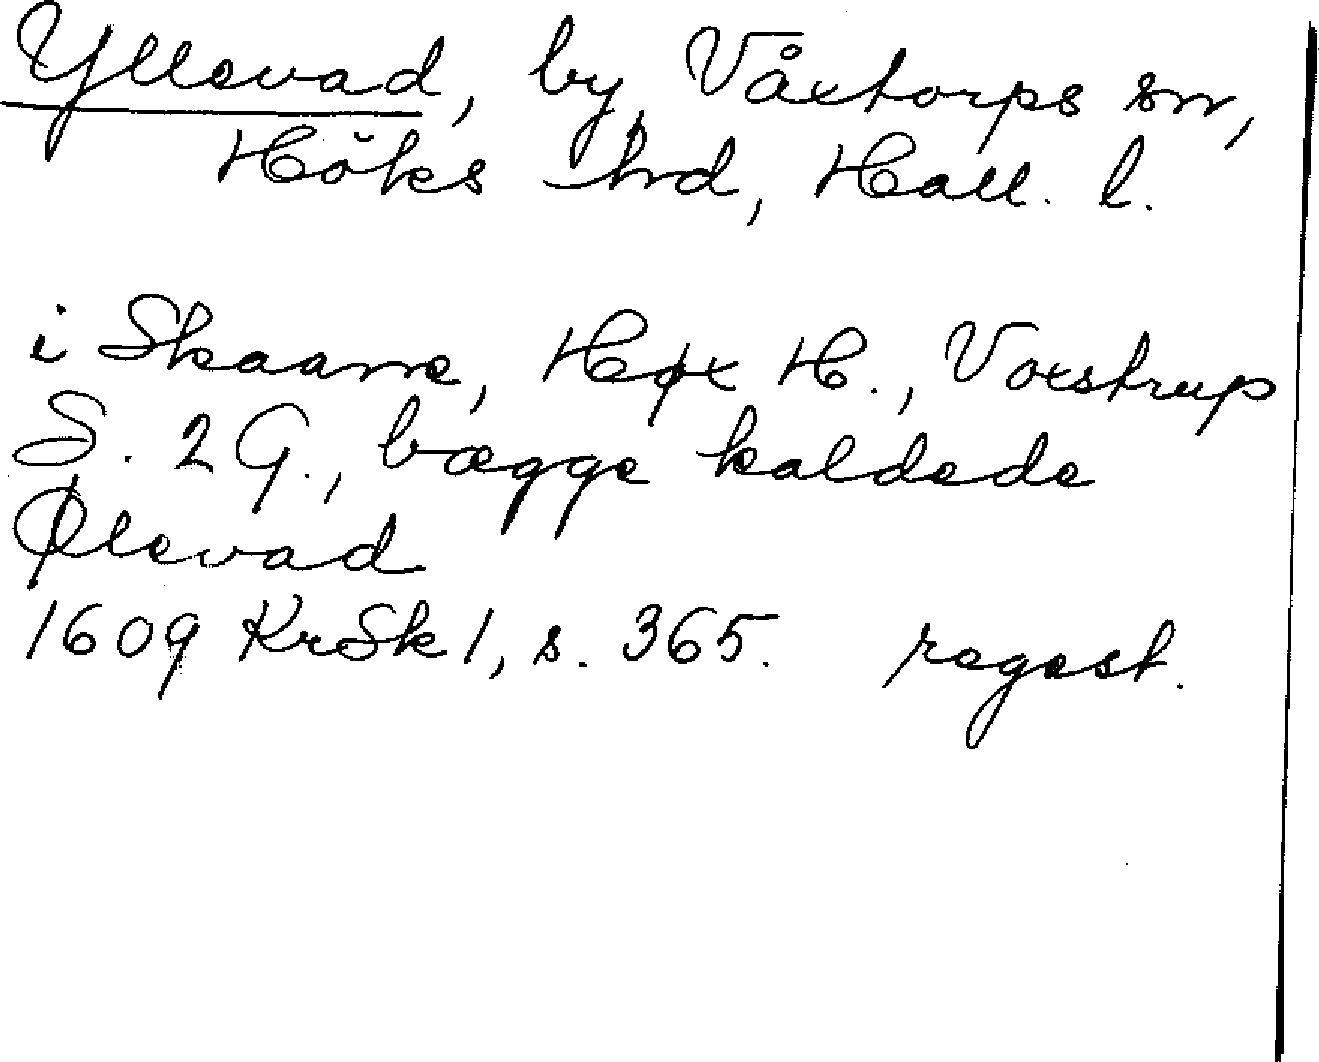 Yllevad, by, Våxtorps sn,
Höks hrd, Hall. l.
i Skaane, Høx H., Voxstrup
S. 2 G., bægge kaldede
Ølevad
1609 KrSk 1, s. 365. regest.